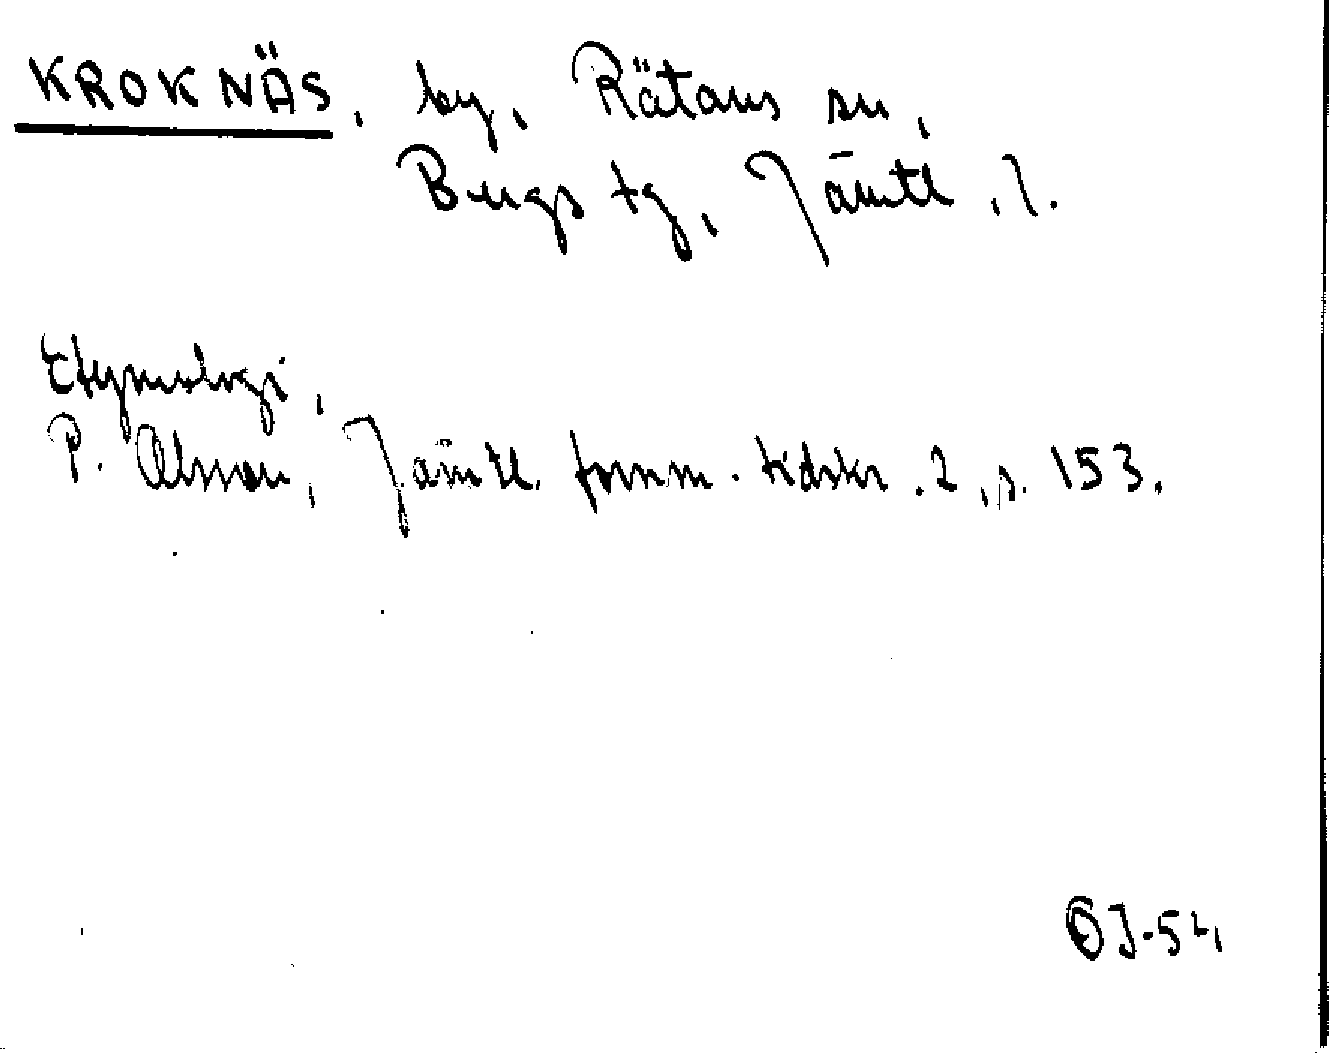 KROKNÄS, by, Rätans sn,
Bergs tg, Jämtl. l.
Etymologi,
P. Olsson, Jämtl. fornm. tidskr. 2, s. 153.
OJ-54